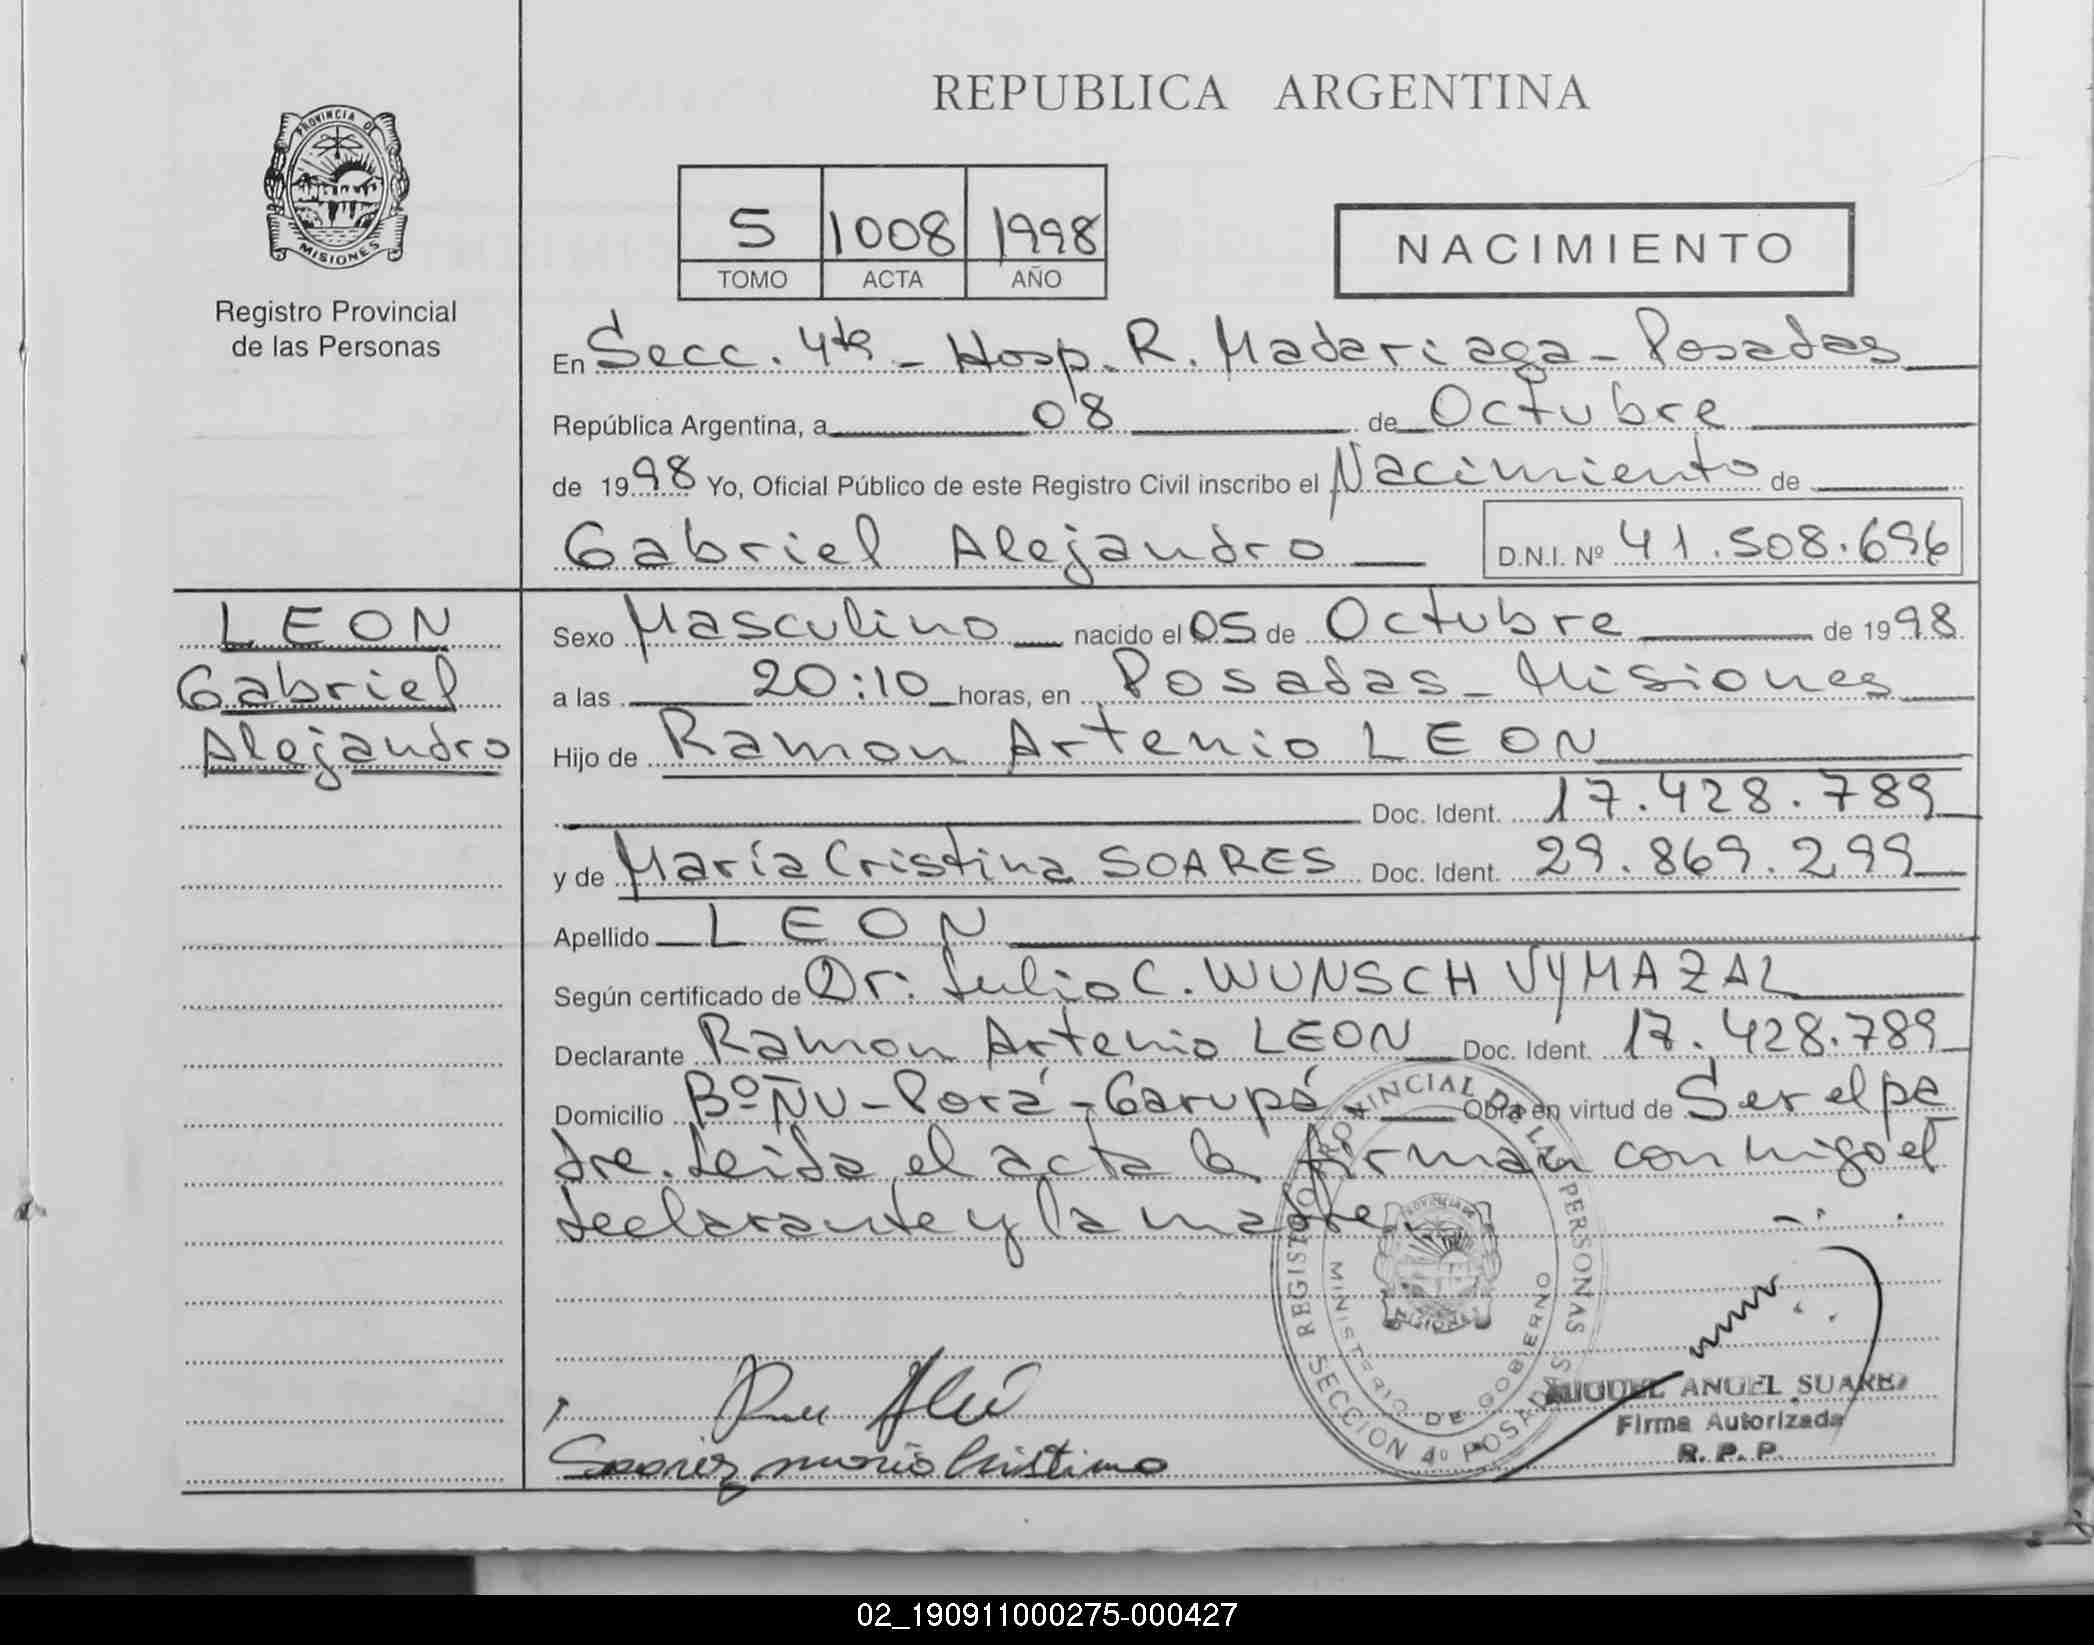 REPUBLICA ARGENTINA
PROVINCIA DE
MISIONES
Registro Provincial
de las Personas
5 1008 1998
TOMO ACTA AÑO
NACIMIENTO
En Secc. 4ta - Hosp. R. Madariaga - Posadas
República Argentina, a 08 de Octubre
de 1998 Yo, Oficial Público de este Registro Civil inscribo el Nacimiento de
Gabriel Alejandro D.N.I. Nº 41.508.696
LEON
Gabriel
Alejandro
Sexo Masculino nacido el 05 de Octubre de 1998
a las 20:10 horas, en Posadas - Misiones
Hijo de Ramon Artenio LEON
Doc. Ident. 17.428.789
y de María Cristina SOARES Doc. Ident. 29.869.299
Apellido LEON
Según certificado de Dr. Julio C. WUNSCH VYMAZAL
Declarante Ramon Artenio LEON Doc. Ident. 17.428.789
Domicilio Bº ÑU - Porá - Garupá - Obra en virtud de Ser el pa
dre. Leída el acta la firman conmigo el
declarante y la madre.
REGISTRO PROVINCIAL DE LAS PERSONAS
MINISTERIO DE GOBIERNO
SECCION 4º POSADAS
MIGUEL ANGEL SUAREZ
Firma Autorizada
R. P. P.
Soarez maria Cristina
02_190911000275-000427